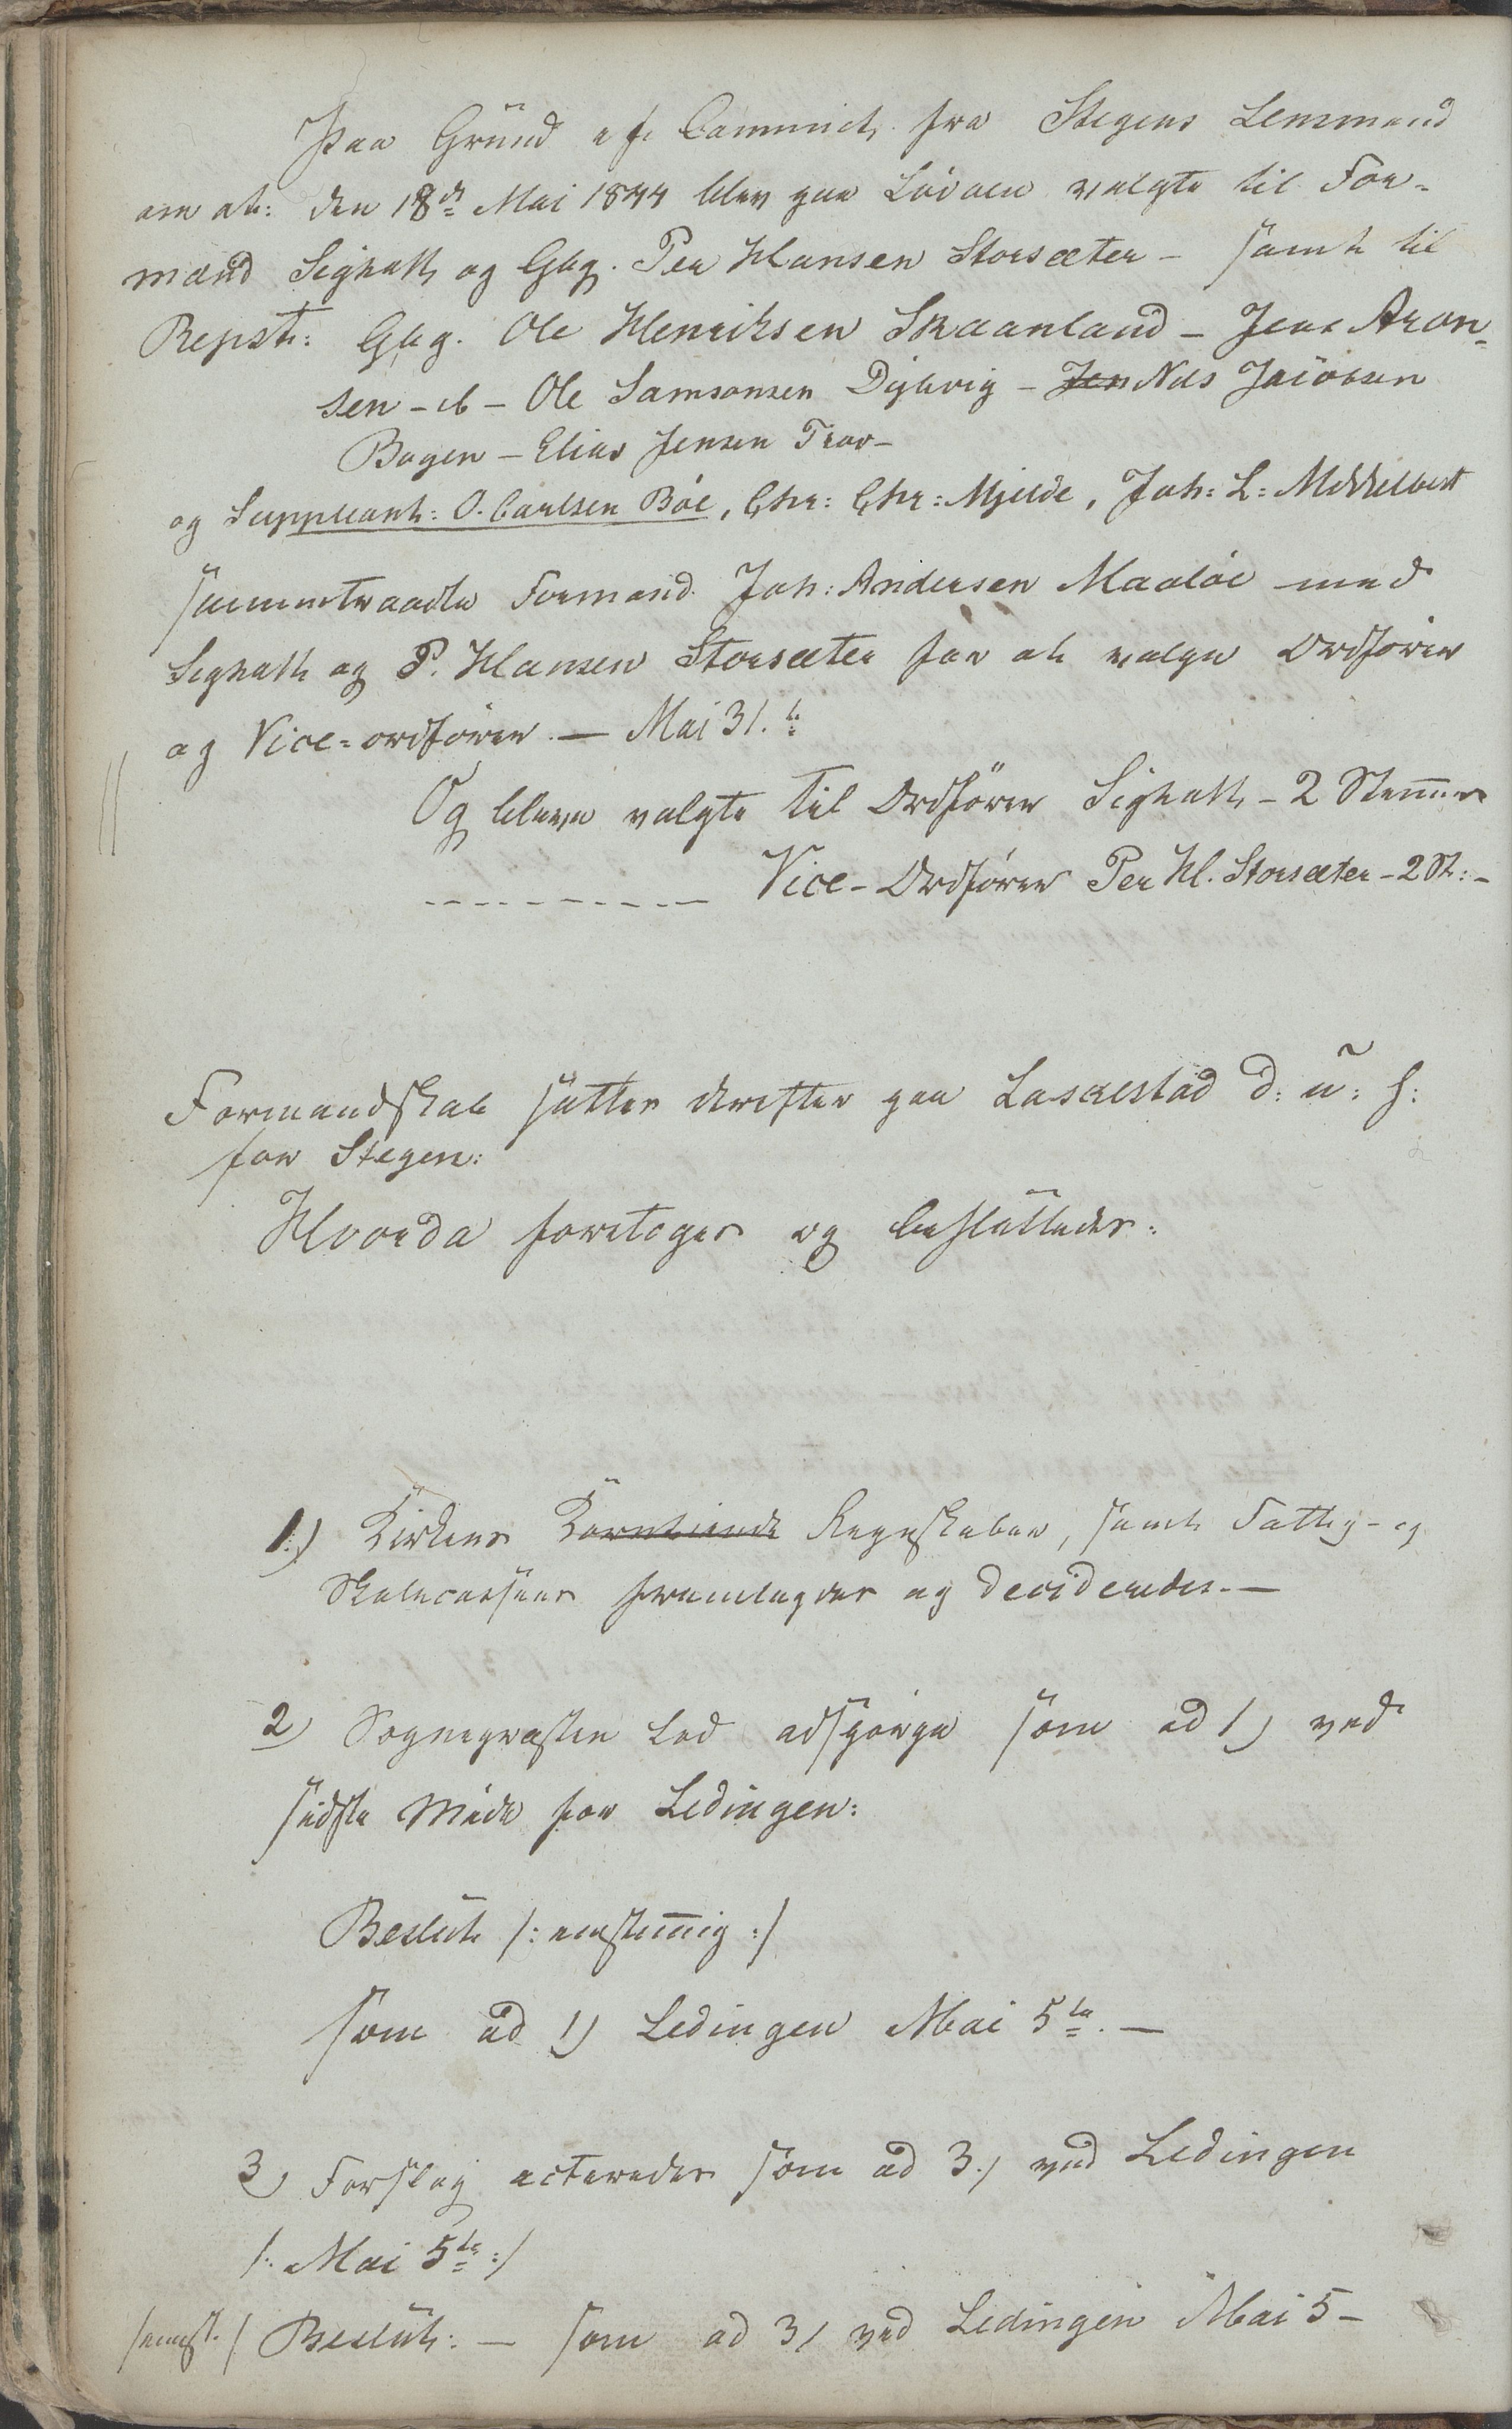 Paa Grund af Commint. fra Stegens Lensmand
om at: den 18d Mai 1844 blev paa Lødøen valgte til For=
mænd Sighatt, og Gbg. Per Hansen Storsæter – samt til
Repst: Gbg. Ole Henriksen Skaanland – Jens Aron=
sen – ib – Ole Samsonsen Dybvig – Jen Nils Jacobsen
Bogen – Elias Jensen Trav–
og Suppleant: O. Carlsen Böe, Chr: Chr: Mjelde, Joh: L: Middelbost
sammentraadte Formænd Joh: Andersen Maaløe med
Sighatt og P. Hansen Storsæter for at valge Ordfører
og Vice=ordfører. — Mai 31.te
Og bleve valgte til Ordfører Sighatt – 2 Stemmer
---------- Vice-Ordfører Per H. Storsæter – 2 St: –
Formandskab sattes derefter paa Laskestad d: u: s:
for Stegen:
Hvorda foretoges og besluttedes:
1.) Kirkens Korntiende Regnskaber, samt Fattig- og
Skolecassens fremlagdes og decideredes. —
2) Sognepræsten lod adspørge som ad 1) ved
sidste Møde for Lødingen:
Beslut /: enstemig :/
som ad 1) Lødingen Mai 5te. —
3) Forslag acteredes som ad 3.) ved Lødingen
/: Mai 5te :/
/enst./ Beslut: — som ad 3/ ved Lødingen Mai 5 –